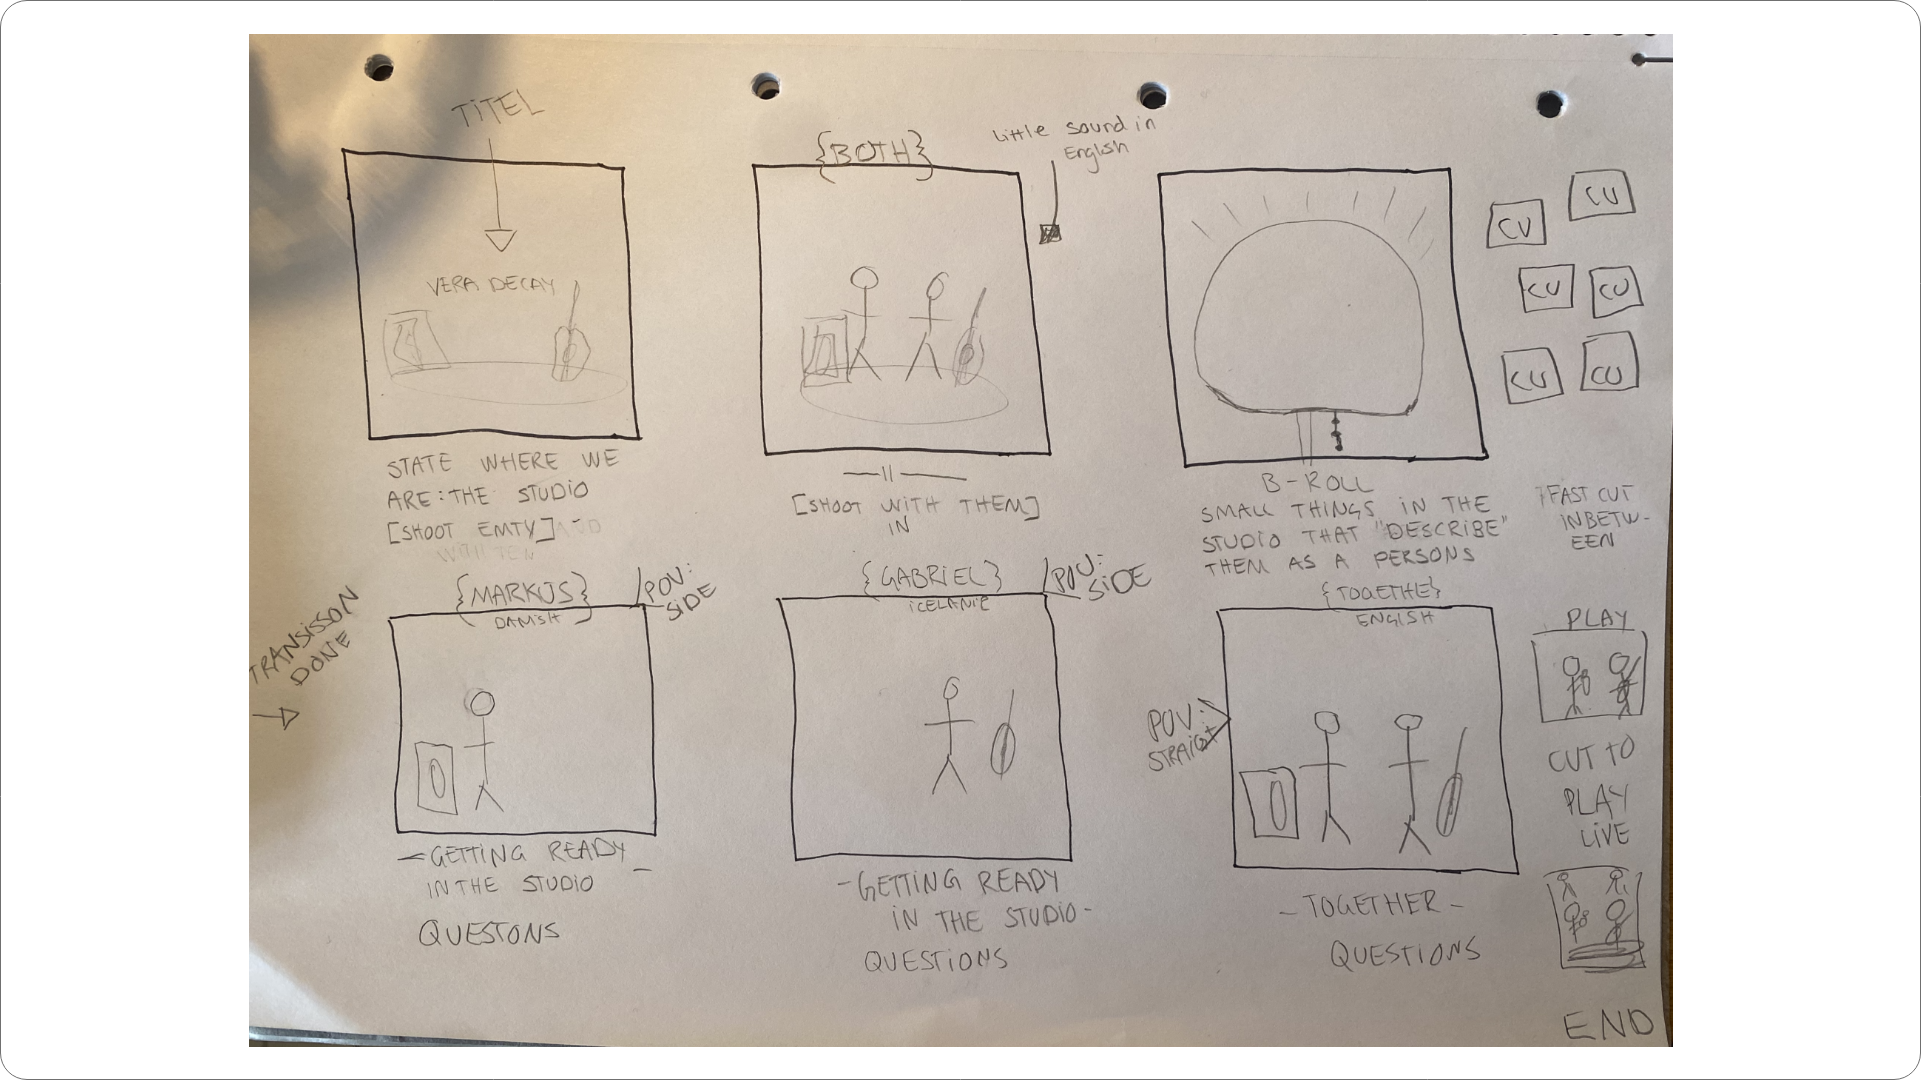 TiTEL
VERA DECAY
STATE WHERE WE
ARE: THE STUDIO
[SHOOT EMTY]
{BOTH}
Little sound in
English
—11—
[SHOOT WITH THEM]
IN
CU
CU
CU
CU
CU
CU
B-ROLL
SMALL THINGS IN THE
STUDIO THAT "DESCRIBE"
THEM AS A PERSONS
FAST CUT
INBETW-
EEN
TRANSISSON
DONE
{MARKUS}
DANISH
POV:
SiDE
-GETTING READY
IN THE STUDIO -
QUESTONS
{GABRIEL}
iCELANiC
POV:
SiDE
-GETTING READY
iN THE STUDIO-
QUESTiONS
{TOGETHE}
ENGlSH
POV:
STRAIGT
- TOGETHER -
QUESTiONS
PLAY
CUT TO
PLAY
LiVE
END